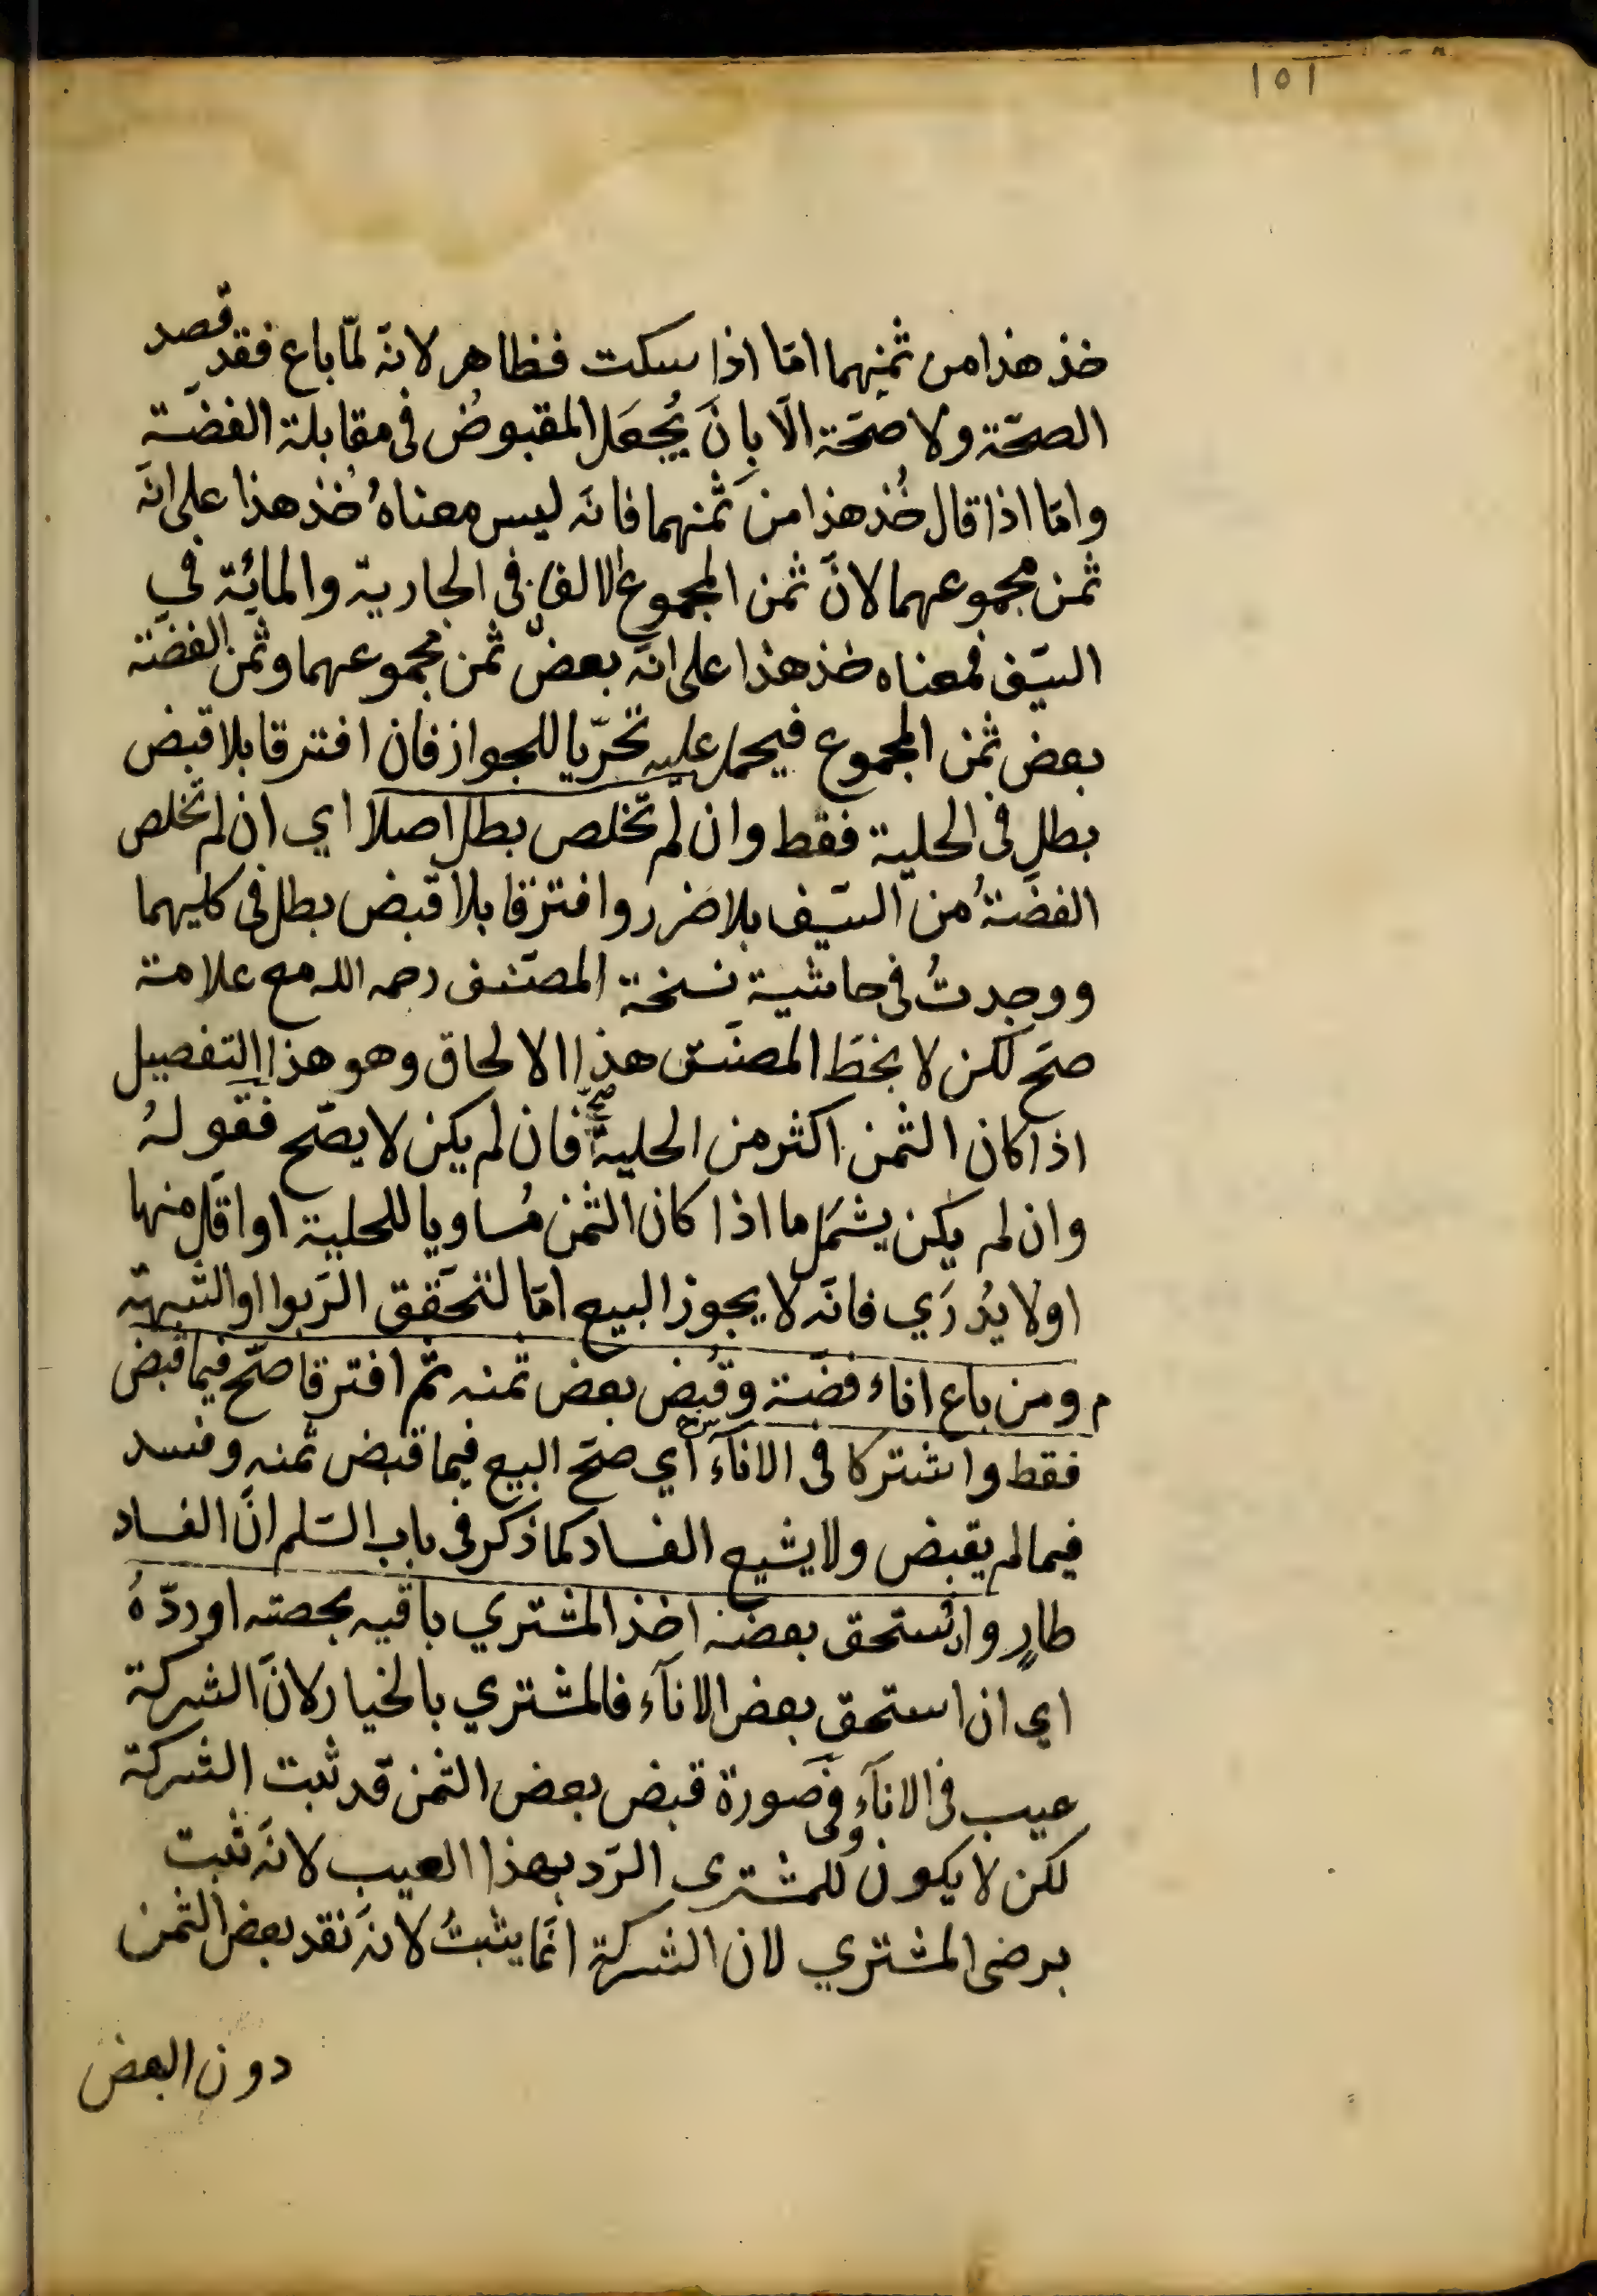 ١٥١
خذ هذا من ثمنهما امّا اذا سكت فظاهر لانّه لمّا باع فقد قصد
الصحّة ولا صحّة الّا بانَ يُجعَل المقبوضُ فى مقابلة الفضّة
وامّا اذا قال خُذ هذا من ثمنهما فانّه ليس معناهُ خُذ هذا على انّه
ثمن مجموعهما لانّ ثمن المجموع الالف فى الجارية والمائة في
السّيف فمعناه خذ هذا على انّه بعض ثمن مجموعهما وثمن الفضّة
بعض ثمن المجموع فيحمل عليه تحرّيا للجواز فان افترقا بلا قبض
بطل فى الحلية فقط وان لم تخلص بطل اصلا اي ان لم تخلص
الفضّةُ من السّيف بلا ضرر وافترقا بلا قبض بطل فى كليهما
ووجدتُ فى حاشية نسخة المصنّف رحمه الله مع علامة
صحّ لكن لا بخطّ المصنّف هذا الالحاق وهو هذا التفصيل
اذا كان الثمن اكثر من الحلية صحّ فان لم يكن لا يصّح فقوله
وان لم يكن يشمَل ما اذا كان الثمن مُساويا للحلية او اقل منها
اولا يُدرَي فانّه لا يجوز البيع امّا لتحَقّق الرّبوا او الشبهة
م ومن باع اناء فضّة وقُبض بعض ثمنه ثمّ افترقا صحّ فيما قبض
فقط واشتركا فى الاناَء ش اي صحّ البيع فيما قبض ثمنه وفسد
فيما لم يقبض ولا يشيع الفساد كما ذكر فى باب السّلم انّ الفساد
طارٍ وان استحق بعضه اخذ المشتري باقيه بحصته او ردّهُ
اي ان استحق بعض الاناَء فالمشتري بالخيار لانّ الشركة
عيب فى الاناَء وفى صورة قبض بعض الثمن قد ثبت الشركة
لكن لا يكون للمشترى الرّد بهذا العيب لانّه ثبت
برضى المشتري لان الشركة انّما يثبتُ لانّه نقد بعض الثمن
دون البعض